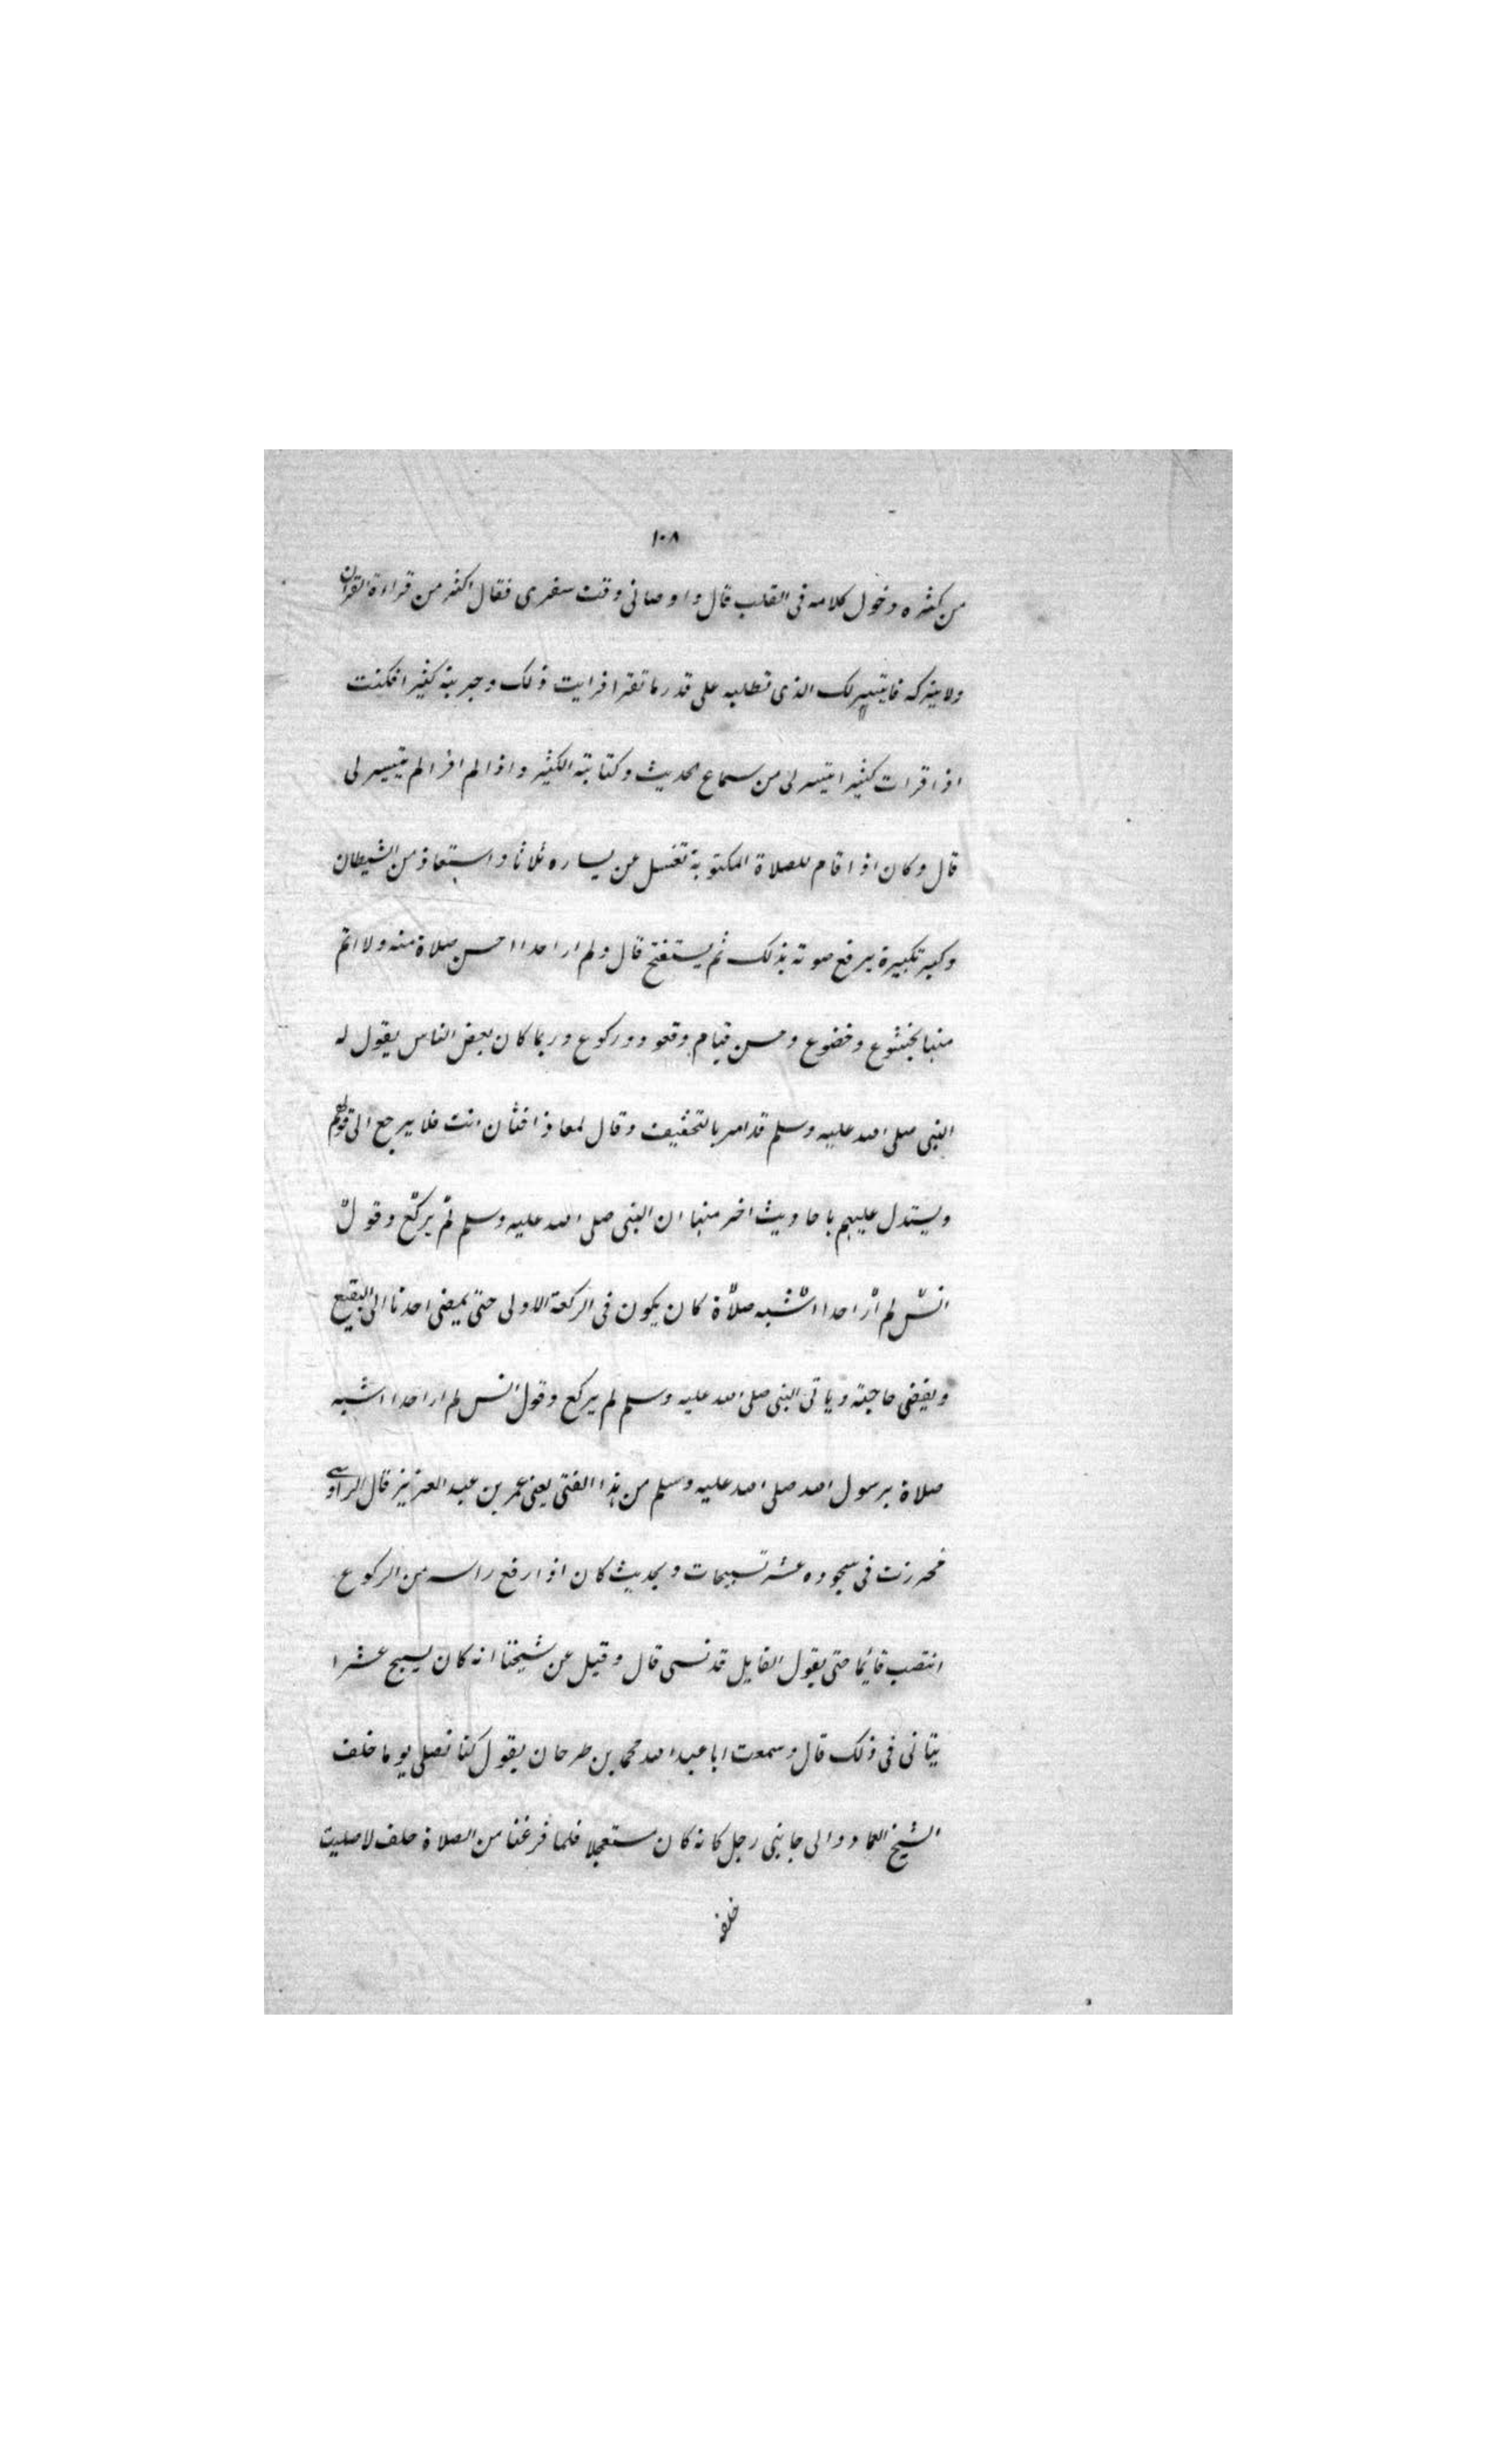 ١٠٨
من كثره دخول كلامه فى القلب قال واوصانى وقت سفرى فقال اكثر من قراءة القران
ولا يتركه فايتيسر لك الذى تطلبه على قدر ما تقرا فرايت ذلك وجربته كثيرا فكنت
اذا قرات كثيرا تيسر لى من سماع الحديث وكتابته الكثير واذا لم اقرا لم يتيسر لى
قال وكان اذا قام للصلاة المكتوبة تغسل عن يساره ثلاثا واستعاذ من الشيطان
وكبر تكبيرة يرفع صوته بذلك ثم يستفتح قال ولم ار احدا احسن صلاة منه ولا اتم
منها بخشوع وخضوع وحسن قيام وقعود وركوع وربما كان بعض الناس يقول له
النبى صلى الله عليه وسلم قد امر بالتخفيف وقال لمعاذ افتان انت فلا يرجع الى قولهم
ويستدل عليهم باحاديث اخر منها ان النبى صلى الله عليه وسلم لم يركع وقول
انس لم ار احدا اشبه صلاة كان يكون فى الركعة الاولى حتى يمضى احدنا الى البقيع
ويقضى حاجته وياتى النبى صلى الله عليه وسلم لم يركع وقول انس لم ار احدا اشبه
صلاة برسول الله صلى الله عليه وسلم من هذا الفتى يعنى عمر بن عبد العزيز قال الراوى
فحزرت فى سجوده عشر تسبيحات وبحديث كان اذا رفع راسه من الركوع
انتصب قائما حتى يقول القايل قد نسى قال وقيل عن شيخنا انه كان يسبح عشرا
يتانى فى ذلك قال وسمعت ابا عبد الله محمد بن طرحان يقول كنا نصلى يوما خلف
الشيخ العماد والى جانبى رجل كانه كان مستعجلا فلما فرغنا من الصلاة حلف لا صليت
خلفه